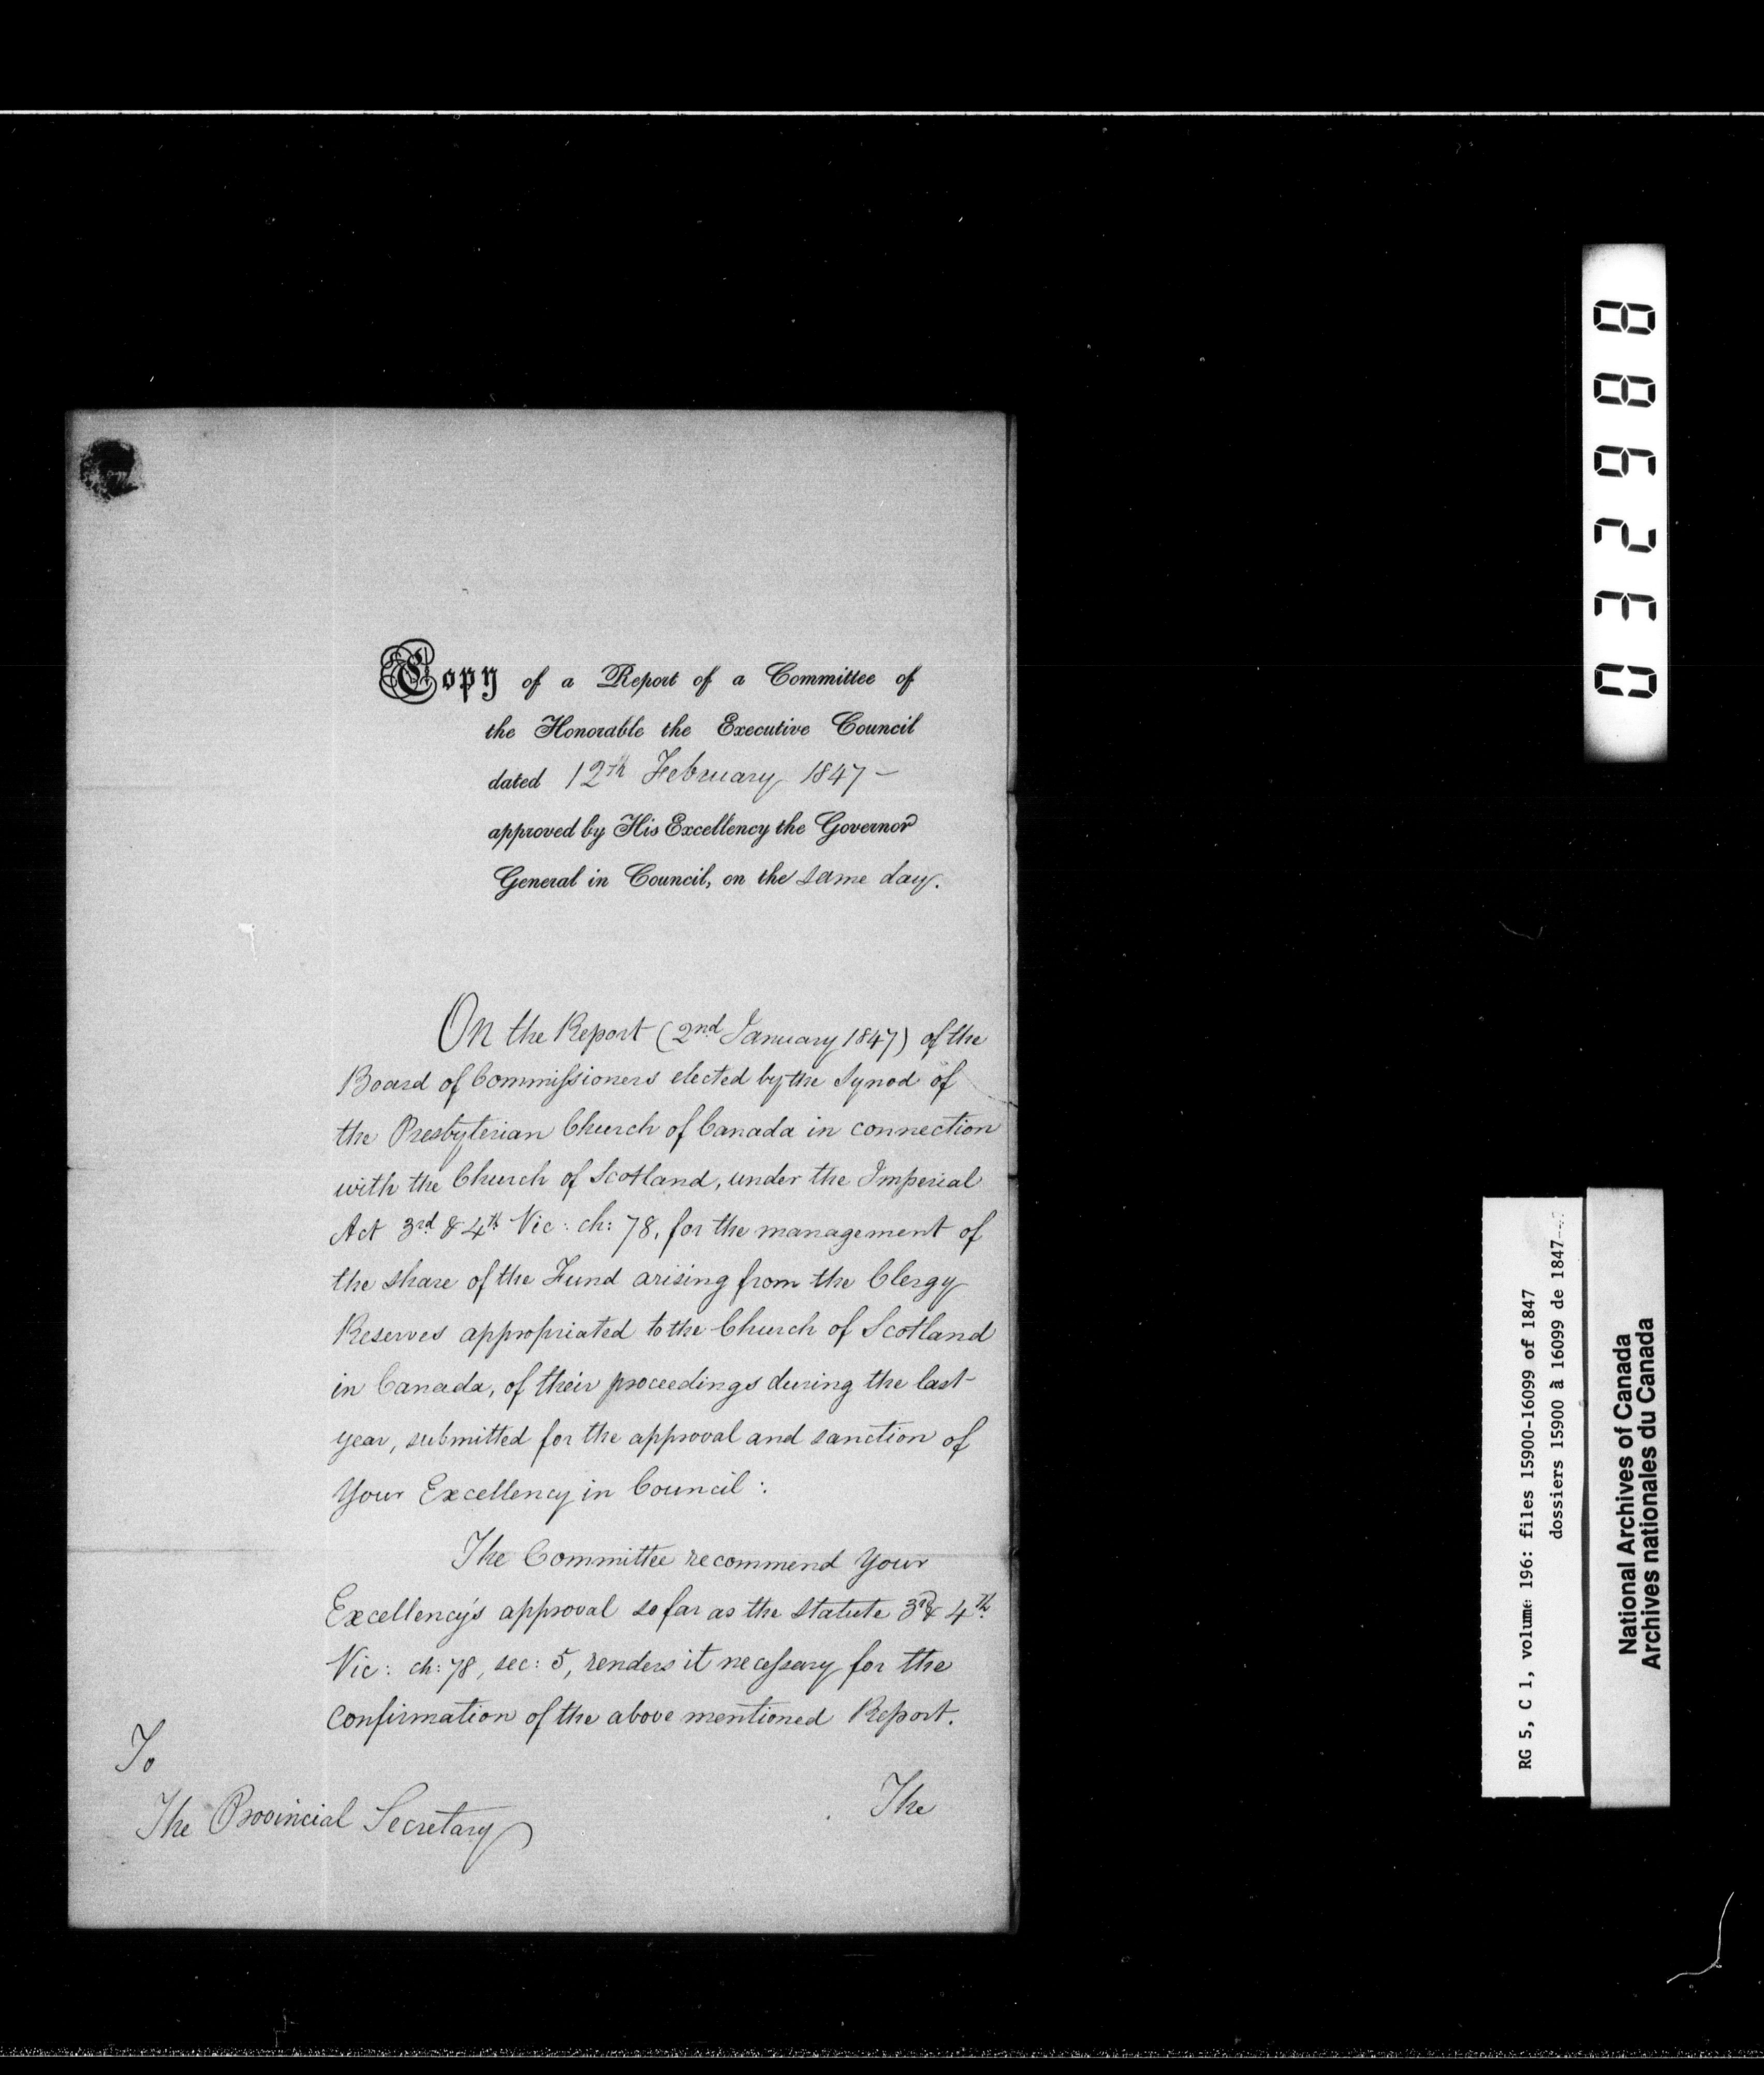 Copy of a Report of a Committee of
the Honorable the Executive Council
dated 12th February 1847 —
approved by His Excellency the Governor
General in Council, on the same day.
On the Report (2nd January 1847) of the
Board of Commissioners elected by the Synod of
the Presbyterian Church of Canada in connection
with the Church of Scotland, under the Imperial
Act 3rd & 4th Vic: ch: 78, for the management of
the share of the Fund arising from the Clergy
Reserves appropriated to the Church of Scotland
in Canada, of their proceedings during the last
year, submitted for the approval and sanction of
Your Excellency in Council:
The Committee recommend Your
Excellency's approval so far as the statute 3rd & 4th
Vic: ch: 78, sec: 5, renders it necessary for the
confirmation of the above mentioned Report.
To
The Provincial Secretary
The
032988
RG 5, C 1, volume 196: files 15900-16099 of 1847
dossiers 15900 à 16099 de 1847
National Archives of Canada
Archives nationales du Canada